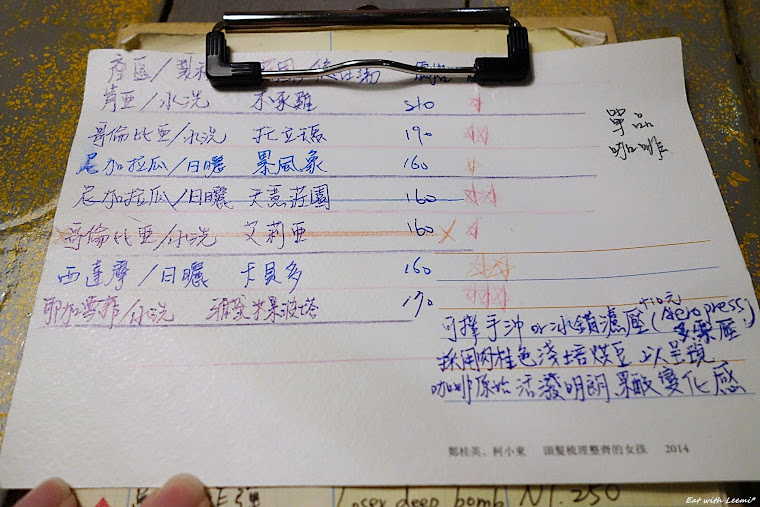 產區/製
肯亞/水洗 不承雞 210
單品
咖啡
哥倫比亞/水洗 托立瑪 190
尼加拉瓜/日曬 暴風象 160
尼加拉瓜/日曬 天意莊園 160
哥倫比亞/水洗 艾莉亞 160
西達摩/日曬 卡貝多 160
耶加雪菲/水洗 170
+10元
可擇手沖 or 冰鎮濾壓 (Aero press)
採用肉桂色淺焙烘豆 以呈現
咖啡原始活潑明朗果酸變化感
鄭桂英、柯小東 頭髮梳理整齊的女孩 2014
Loser deep bomb NT. 250
Eat with Leemi*